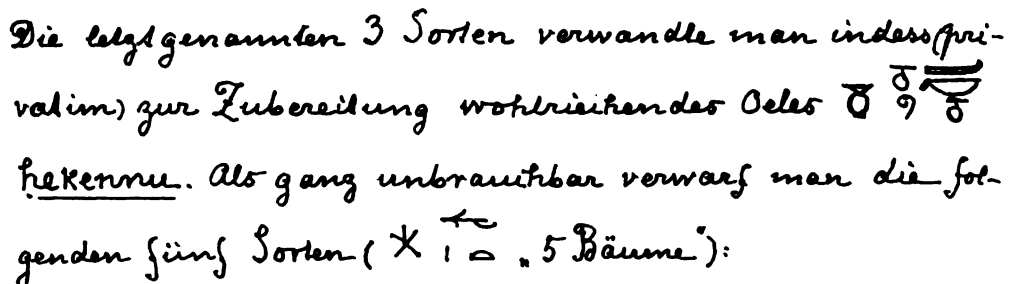 Die letztgenannten 3 Sorten verwandte man indess (pri-
vatim) zur Zubereitung wohlriechender Oele
ḥekennu. Als ganz unbrauchbar verwarf man die fol-
genden fünf Sorten ( „5 Bäume“):